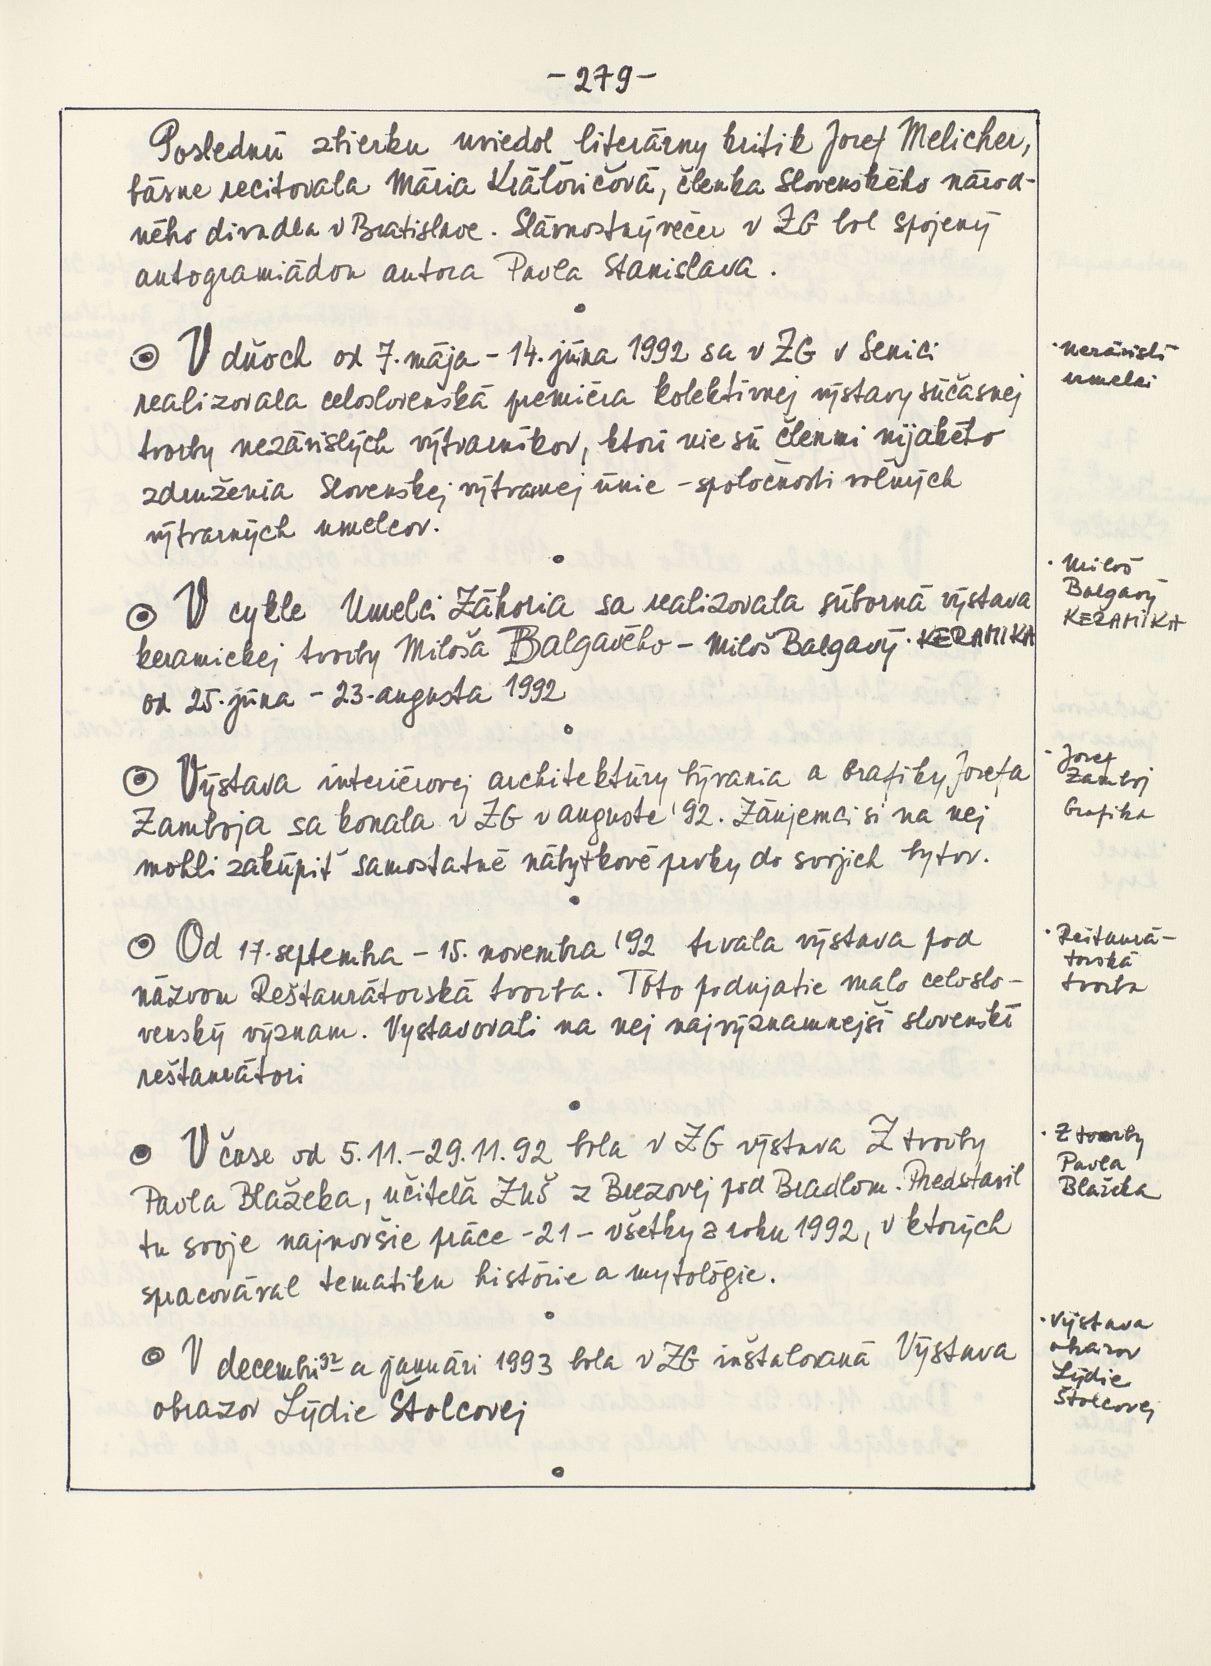 - 279 -
Poslednú zbierku uviedol literárny kritik Jozef Melicher,
básne recitovala Mária Kráľovičová, členka Slovenského národ-
ného divadla v Bratislave. Slávnostný večer v ZG bol spojený
autogramiádou autora Pavla Stanislava.
V dňoch od 7. mája - 14. júna 1992 sa v ZG v Senici
realizovala celoslovenská premiéra kolektívnej výstavy súčasnej
tvorby nezávislých výtvarníkov, ktorí nie sú členmi nijakého
združenia Slovenskej výtvarnej únie - spoločnosti voľných
výtvarných umelcov.
V cykle Umelci Záhoria sa realizovala súborná výstava
keramickej tvorby Miloša Balgavého - Miloš Balgavý · KERAMIKA
od 25. júna - 23. augusta 1992
Výstava interiérovej architektúry bývania a Grafiky Jozefa
Zamboja sa konala v ZG v auguste '92. Záujemci si na nej
mohli zakúpiť samostatné nábytkové prvky do svojich bytov.
Od 17. septembra - 15. novembra '92 trvala výstava pod
názvom Reštaurátorská tvorba. Toto podujatie malo celoslo-
venský význam. Vystavovali na nej najvýznamnejší slovenskí
reštaurátori
V čase od 5.11. - 29.11.92 bola v ZG výstava Z tvorby
Pavla Blažeka, učiteľa ZUŠ z Brezovej pod Bradlom. Predstavil
tu svoje najnovšie práce - 21 - všetky z roku 1992, v ktorých
spracovával tematiku histórie a mytológie.
V decembri 92 a januári 1993 bola v ZG inštalovaná Výstava
obrazov Lýdie Štolcovej
· Nezávislí
umelci
· Miloš
Balgavý
KERAMIKA
· Jozef
Zamboj
Grafika
· Reštaurá-
torská
tvorba
· Z tvorby
Pavla
Blažeka
· Výstava
obrazov
Lýdie
Štolcovej